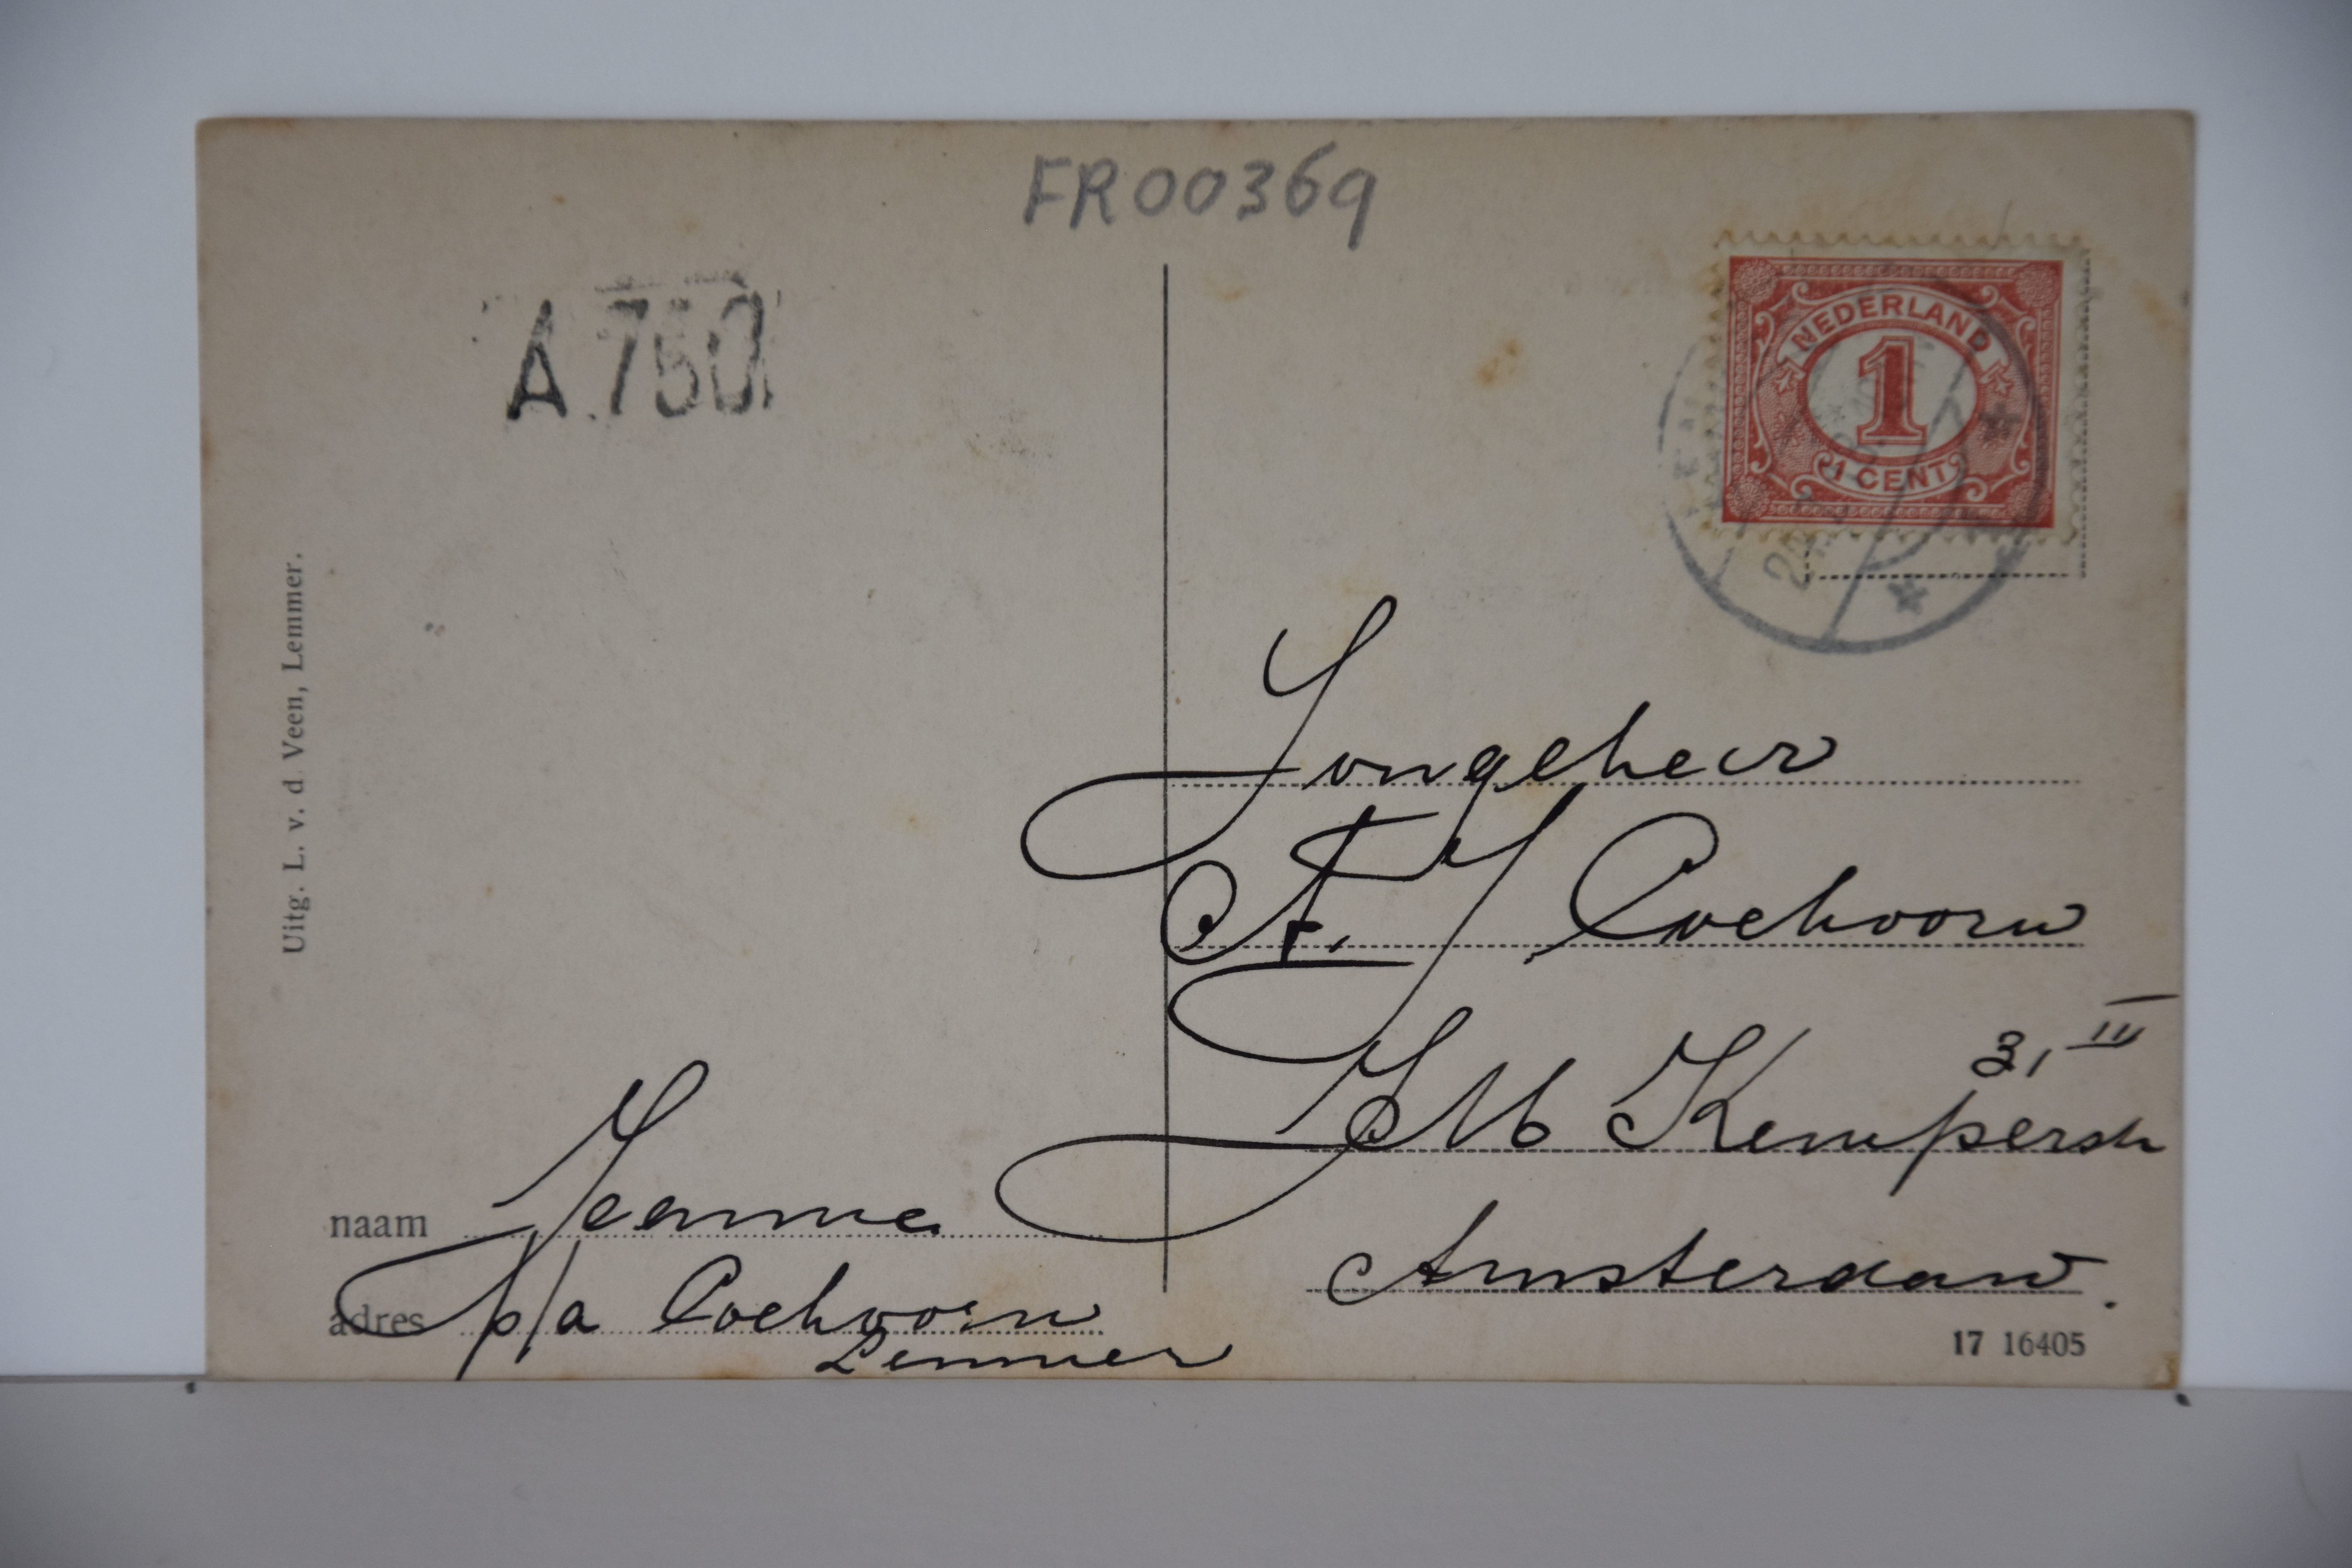 FR00369
A.750
NEDERLAND
1
1 CENT
Uitg. L. v. d. Veen, Lemmer.
Jongeheer
A. F. J Coehoorn
J M Kemperstr
31 III
Amsterdam.
naam Jeanne
adres p/a Coehoorn
Lemmer
17 16405